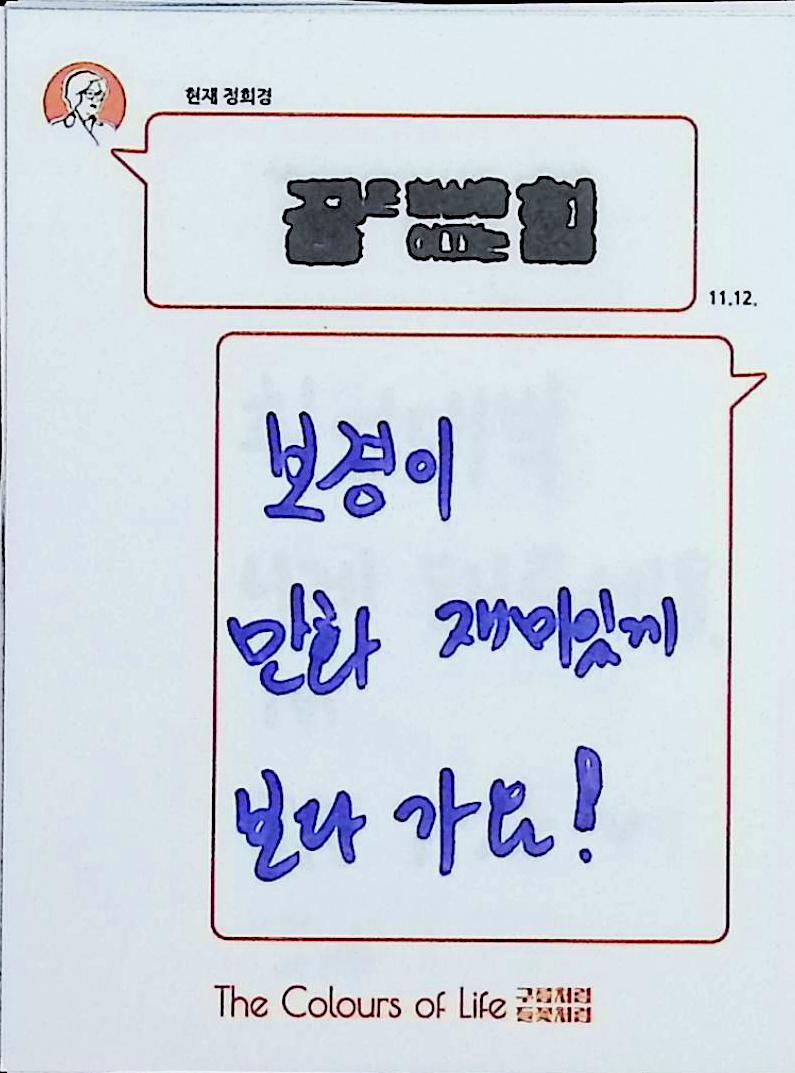 현재 정희경
11.12.
보경이
만화 재미있게
보다 가요!
The Colours of Life 구름처럼
들꽃처럼